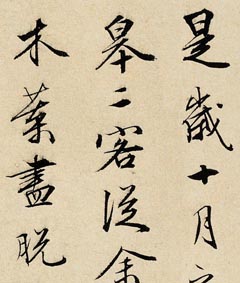 是歲十月
皋二客從余
木葉盡脫